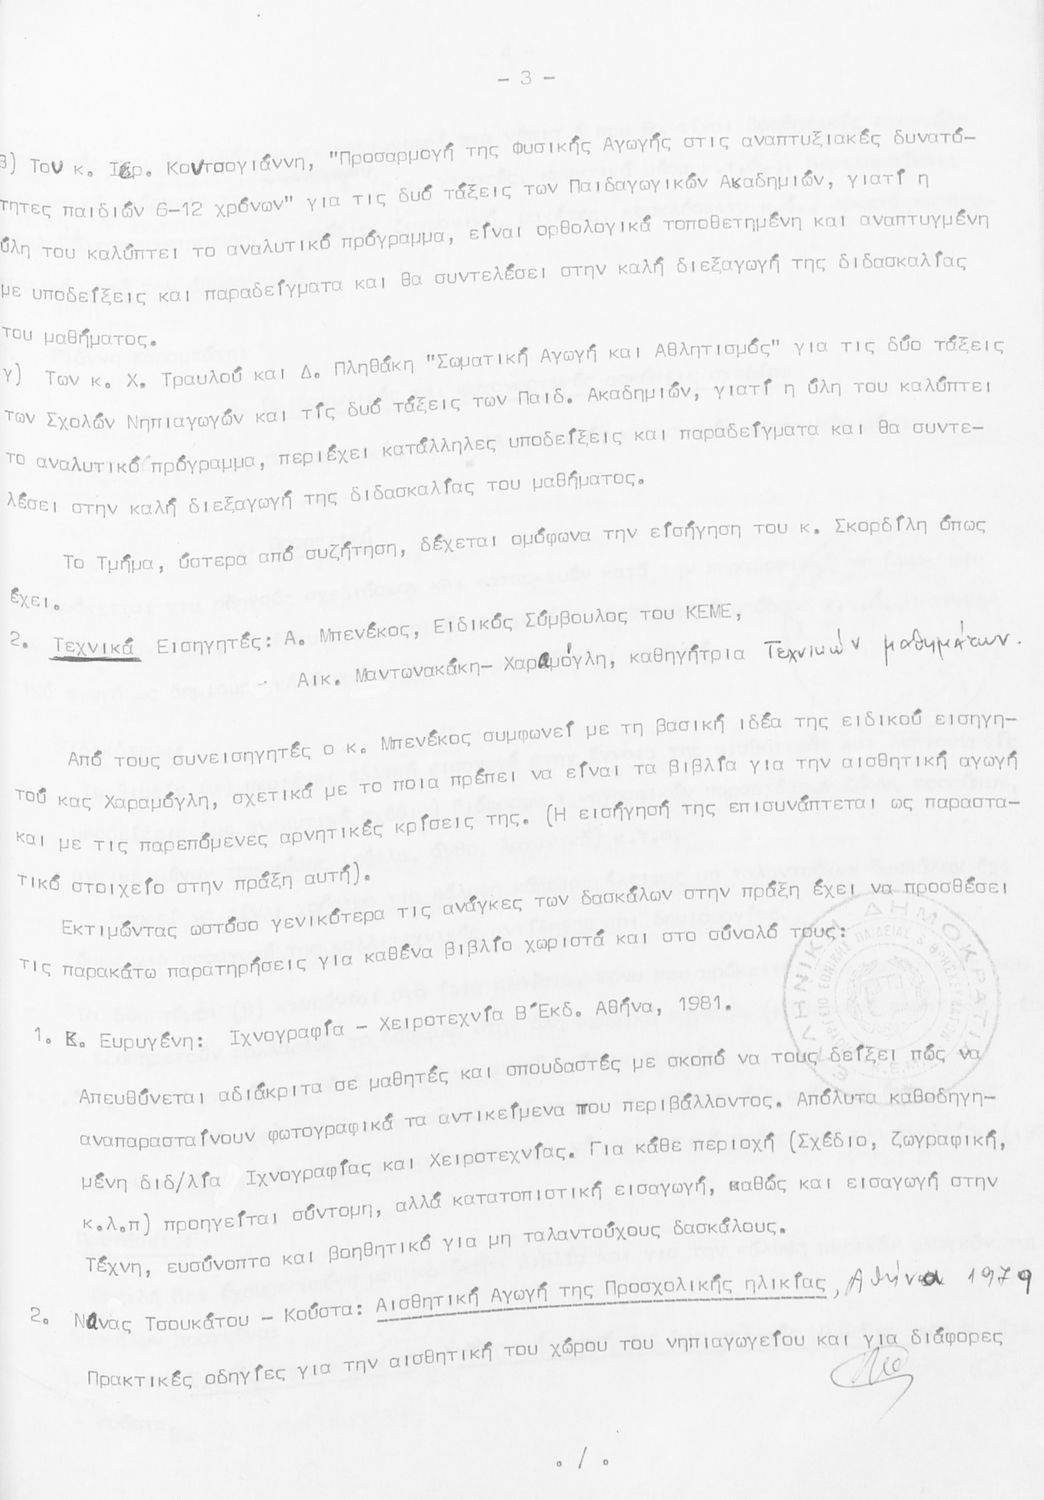 - 3 -
β) Τον κ. Ιερ. Κοντσογιάννη, "Προσαρμογή της Φυσικής Αγωγής στις αναπτυξιακές δυνατό-
τητες παιδιών 6-12 χρόνων" για τις δυό τάξεις των Παιδαγωγικών Ακαδημιών, γιατί η
ύλη του καλύπτει το αναλυτικό πρόγραμμα, είναι ορθολογικά τοποθετημένη και αναπτυγμένη
με υποδείξεις και παραδείγματα και θα συντελέσει στην καλή διεξαγωγή της διδασκαλίας
του μαθήματος.
γ) Των κ. Χ. Τραυλού και Δ. Πληθάκη "Σωματική Αγωγή και Αθλητισμός" για τις δύο τάξεις
των Σχολών Νηπιαγωγών και τίς δυό τάξεις των Παιδ. Ακαδημιών, γιατί η ύλη του καλύπτει
το αναλυτικό πρόγραμμα, περιέχει κατάλληλες υποδείξεις και παραδείγματα και θα συντε-
λέσει στην καλή διεξαγωγή της διδασκαλίας του μαθήματος.
Το Τμήμα, ύστερα από συζήτηση, δέχεται ομόφωνα την είσήγηση του κ. Σκορδίλη όπως
έχει.
2. Τεχνικά Εισηγητές: Α. Μπενέκος, Ειδικός Σύμβουλος του ΚΕΜΕ,
Αικ. Μαντωνακάκη- Χαραμόγλη, καθηγήτρια Τεχνικών μαθημάτων.
Από τους συνεισηγητές ο κ. Μπενέκος συμφωνεί με τη βασική ιδέα της ειδικού εισηγη-
τού κας Χαραμόγλη, σχετικά με το ποια πρέπει να είναι τα βιβλία για την αισθητική αγωγή
και με τις παρεπόμενες αρνητικές κρίσεις της. (Η εισήγησή της επισυνάπτεται ως παραστα-
τικό στοιχείο στην πράξη αυτή).
Εκτιμώντας ωστόσο γενικότερα τις ανάγκες των δασκάλων στην πράξη έχει να προσθέσει
τις παρακάτω παρατηρήσεις για καθένα βιβλίο χωριστά και στο σύνολό τους:
1. Κ. Ευρυγένη: Ιχνογραφία - Χειροτεχνία Β΄Εκδ. Αθήνα, 1981.
Απευθύνεται αδιάκριτα σε μαθητές και σπουδαστές με σκοπό να τους δείξει πώς να
αναπαρασταίνουν φωτογραφικά τα αντικείμενα που περιβάλλοντος. Απόλυτα καθοδηγη-
μένη διδ/λία Ιχνογραφίας και Χειροτεχνίας. Για κάθε περιοχή (Σχέδιο, ζωγραφική,
κ.λ.π) προηγείται σύντομη, αλλά κατατοπιστική εισαγωγή, καθώς και εισαγωγή στην
Τέχνη, ευσύνοπτο και βοηθητικό για μη ταλαντούχους δασκάλους.
2. Νανας Τσουκάτου - Κούστα: Αισθητική Αγωγή της Προσχολικής ηλικίας, Αθήνα 1979
Πρακτικές οδηγίες για την αισθητική του χώρου του νηπιαγωγείου και για διάφορες
./.